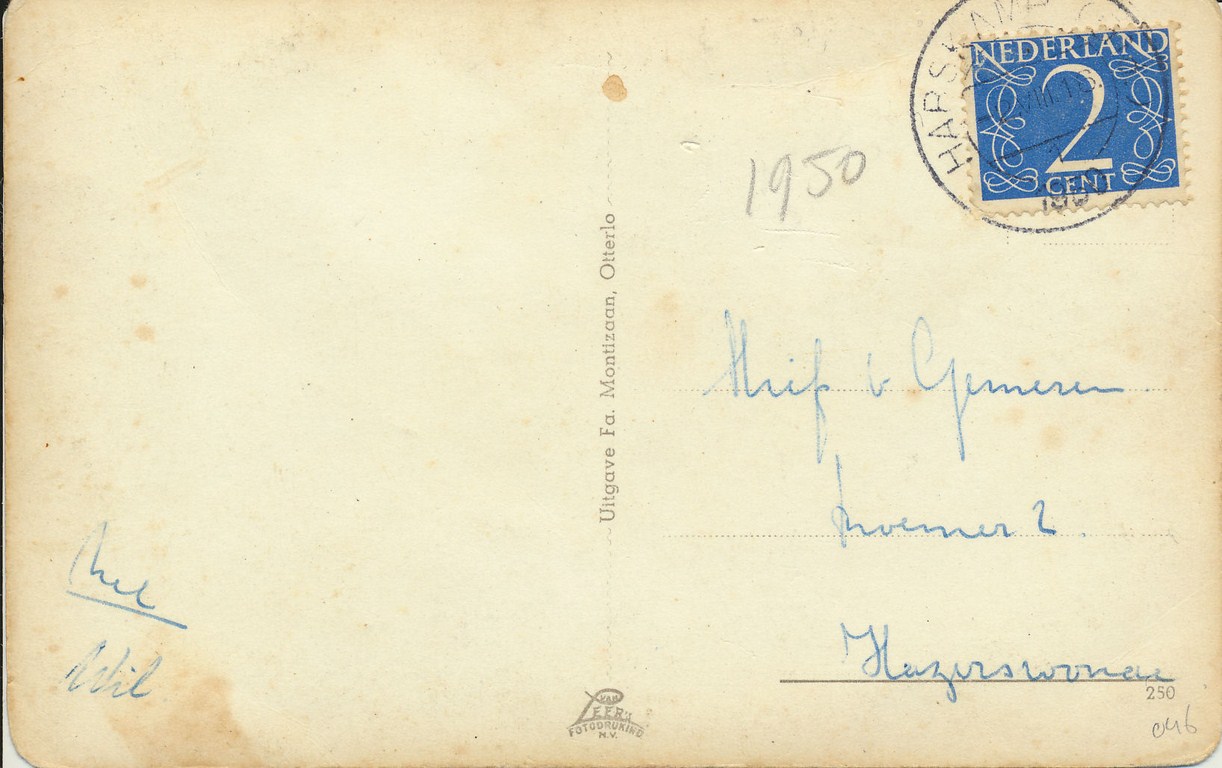 HARSKAMP
NEDERLAND
VIII.1S.
2
CENT
1950
1950
Uitgave Fa. Montizaan, Otterlo
v Gemeren
2.
Hazerswoude
Wil
VAN
LEER'S
FOTODRUKIND
N.V.
250
046